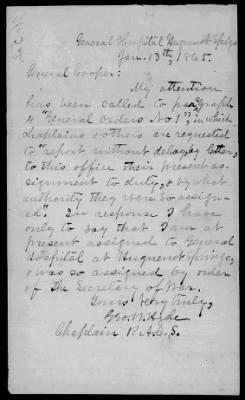 General Hospital Huguenot Springs
Jan. 13th, 1865.
General Cooper:
My attention
has been called to paragraph
4 "General orders No 1", in which
Chaplains & others are requested
to "report without delay by letter,
to this office their present as-
signment to duty, & by what
authority they were so assign-
ed". In response I have
only to say that I am at
present assigned to General
Hospital at Huguenot Springs,
& was so assigned by order
of the Secretary of War.
Yours Very Truly,
Geo. W. Hyde
Chaplain P.A.C.S.